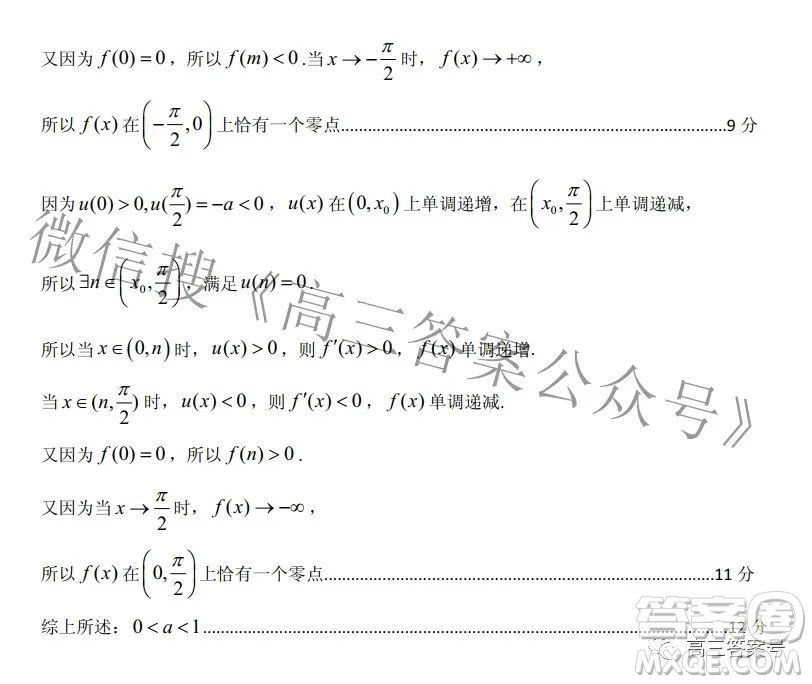 又因为 f(0)=0，所以 f(m)<0.当 x→-π/2 时，f(x)→+∞，
所以 f(x) 在 (-π/2,0) 上恰有一个零点..........................................................................9 分
因为 u(0)>0,u(π/2)=-a<0，u(x) 在 (0,x₀) 上单调递增，在 (x₀,π/2) 上单调递减，
所以 ∃n∈(x₀,π/2)，满足 u(n)=0.
所以当 x∈(0,n) 时，u(x)>0，则 f′(x)>0，f(x) 单调递增.
当 x∈(n,π/2) 时，u(x)<0，则 f′(x)<0，f(x) 单调递减.
又因为 f(0)=0，所以 f(n)>0.
又因为当 x→π/2 时，f(x)→-∞，
所以 f(x) 在 (0,π/2) 上恰有一个零点..........................................................................11 分
综上所述：0<a<1....................................................................................................12 分
微信搜《高三答案公众号》
答案圈
高三答案号
MXQE.COM